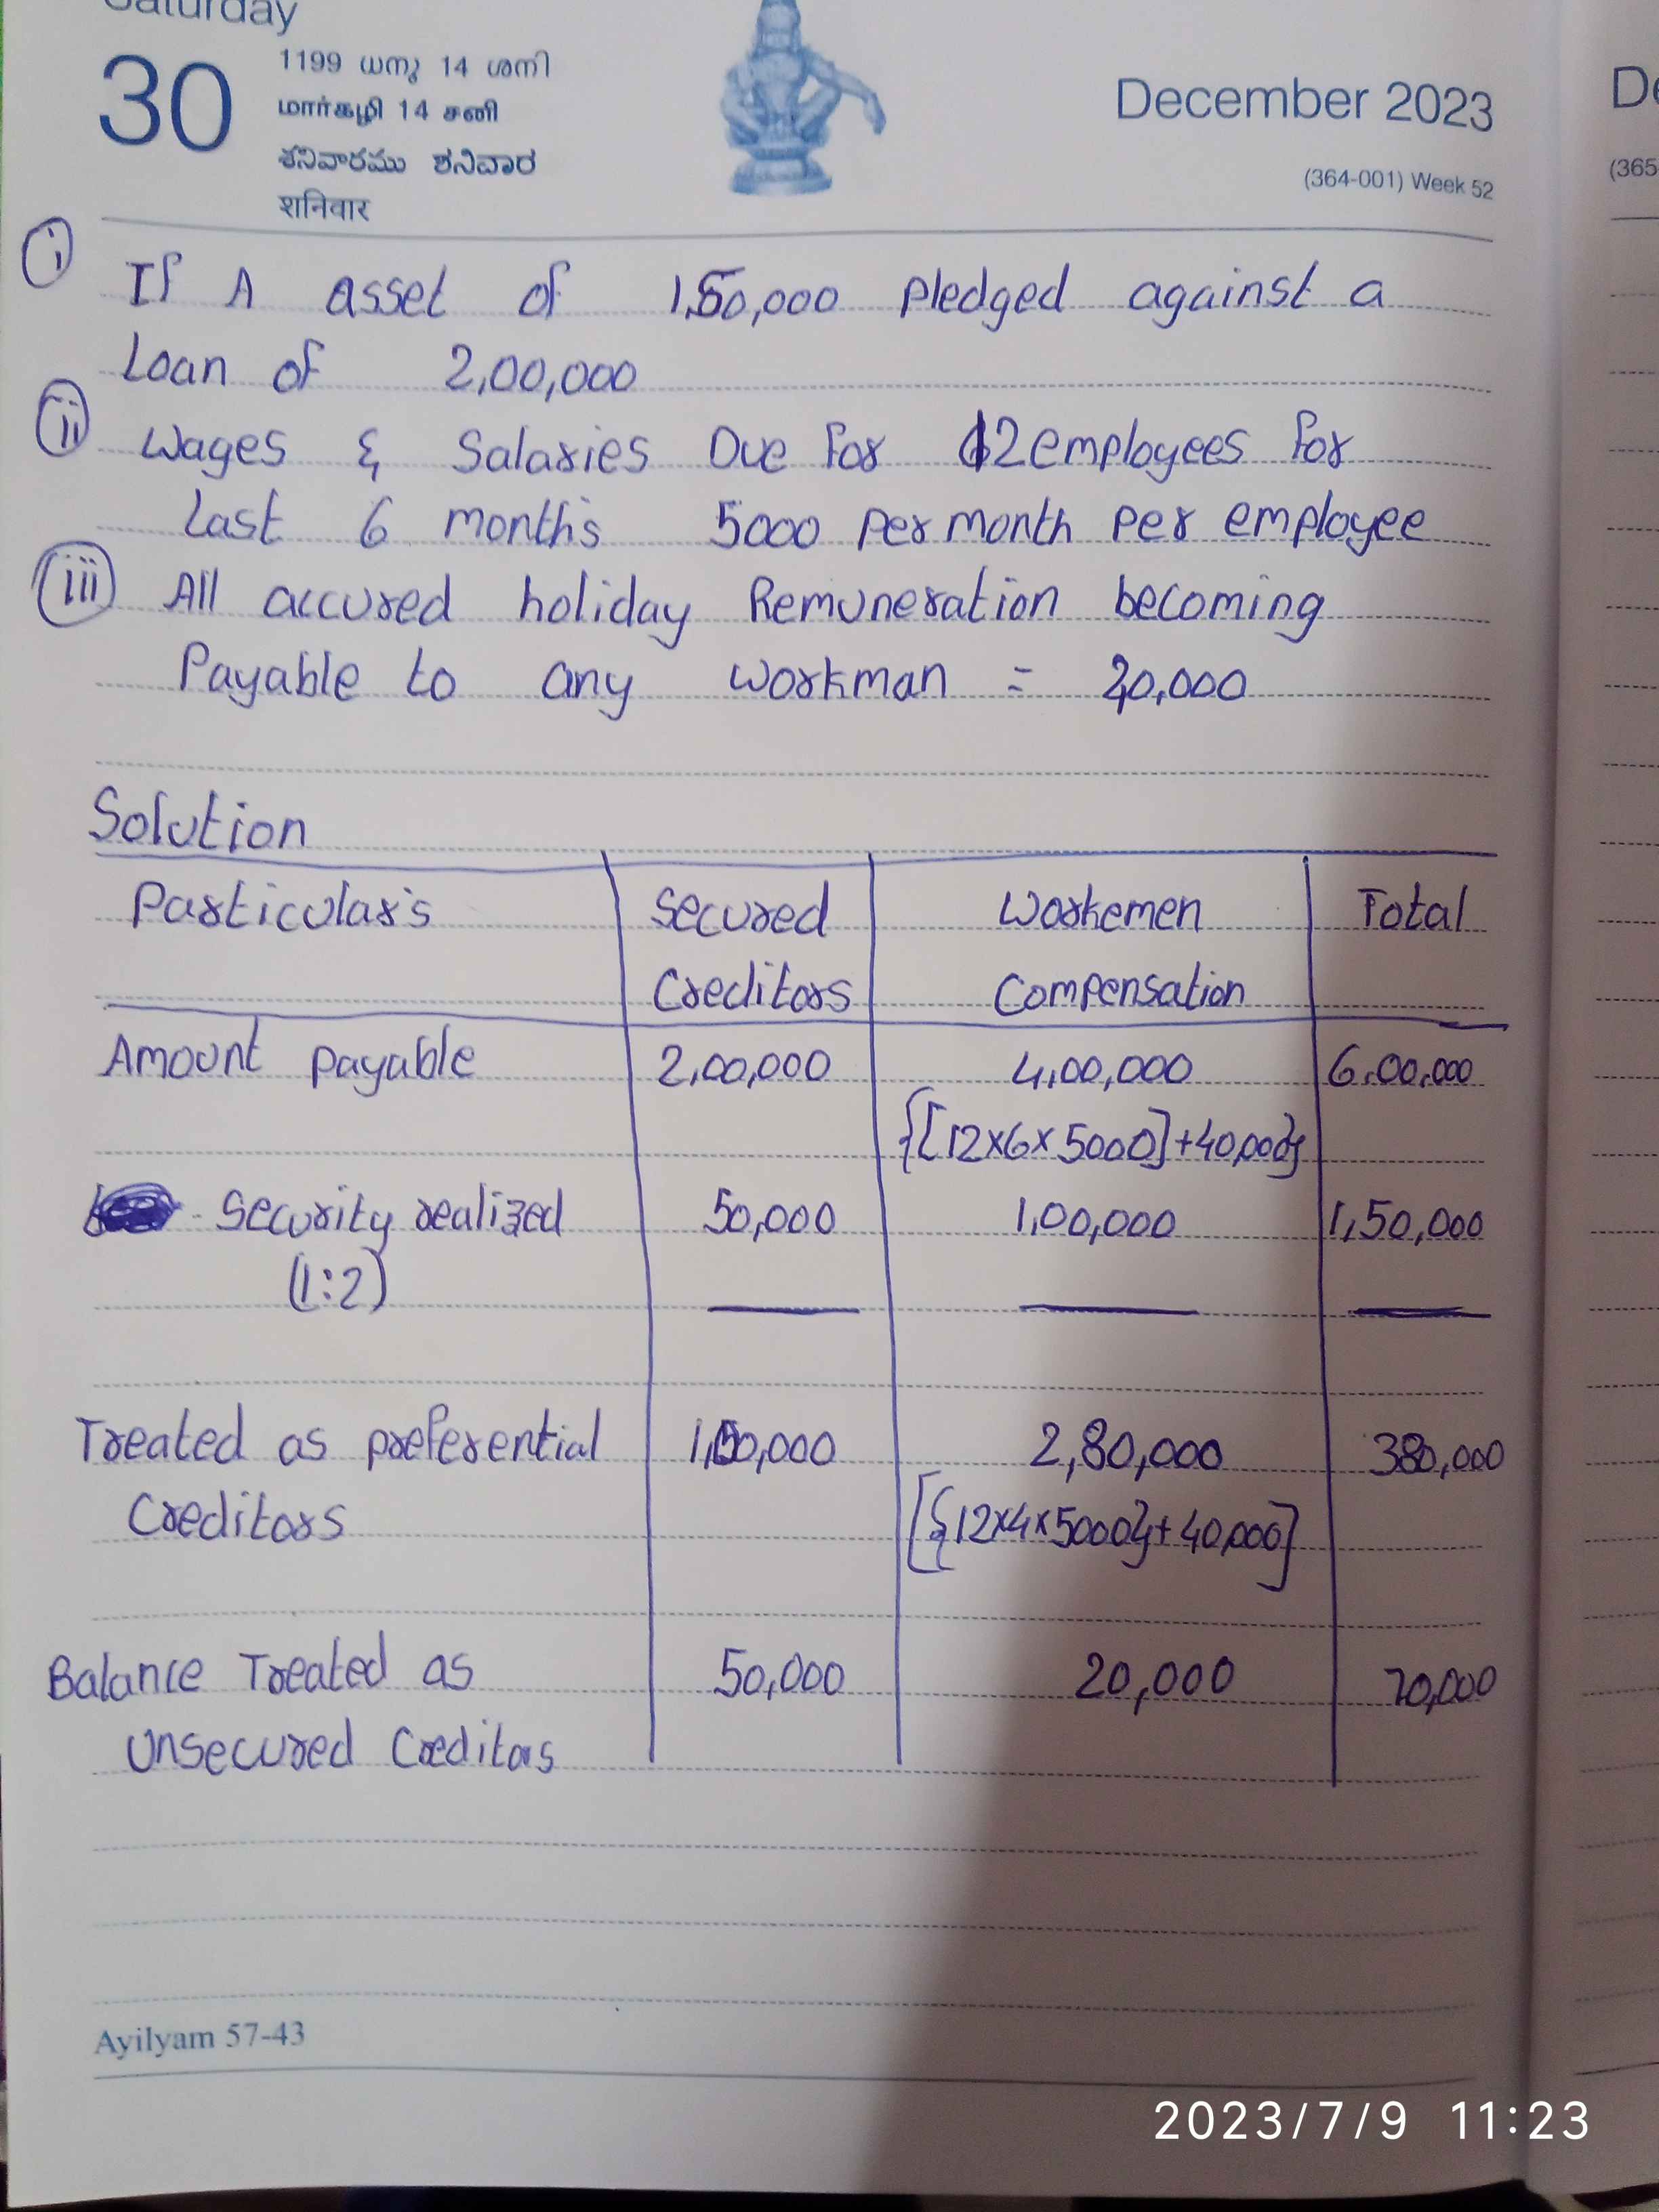 Saturday
30
1199 ധനു 14 ശനി
மார்கழி 14 சனி
శనివారము ಶನಿವಾರ
शनिवार
December 2023
(364-001) Week 52
De
(365
i
If A asset of 1,50,000 pledged against a
Loan of 2,00,000
ii
Wages & Salaries Due for 12 employees for
Last 6 months 5000 per month per employee
iii
All accured holiday Remuneration becoming
Payable to any workman =
Solution
Particulars Secured Workemen Total
Creditors Compensation
Amount payable 2,00,000 4,00,000 6,00,000
{[12x6x5000]+40,000}
Security realized 50,000 1,00,000 1,50,000
(1:2)
Treated as preferential 1,00,000 2,80,000 380,000
Creditors [{12x4x5000}+40,000]
Balance Treated as 50,000 20,000 70,000
Unsecured Creditors
Ayilyam 57-43
2023/7/9 11:23